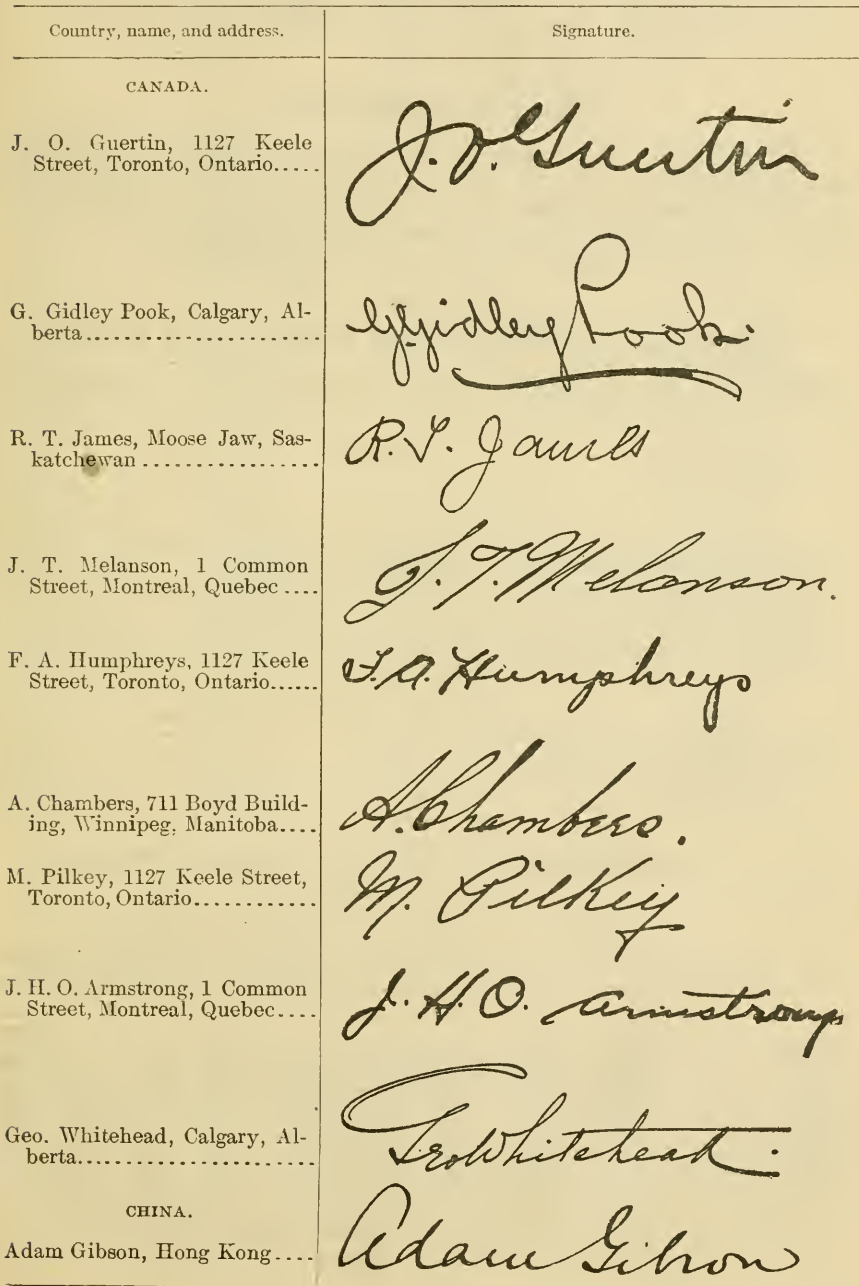 Country, name, and address. Signature.
CANADA.
J. O. Guertin, 1127 Keele
Street, Toronto, Ontario.....
J. O. Guertin
G. Gidley Pook, Calgary, Al-
berta......................
G. Gidley Pook.
R. T. James, Moose Jaw, Sas-
katchewan .................
R. T. James
J. T. Melanson, 1 Common
Street, Montreal, Quebec ....
J. T. Melanson.
F. A. Humphreys, 1127 Keele
Street, Toronto, Ontario......
F. A. Humphreys
A. Chambers, 711 Boyd Build-
ing, Winnipeg, Manitoba....
A. Chambers.
M. Pilkey, 1127 Keele Street,
Toronto, Ontario............
M. Pilkey
J. H. O. Armstrong, 1 Common
Street, Montreal, Quebec....
J. H. O. Armstrong
Geo. Whitehead, Calgary, Al-
berta......................
Geo Whitehead.
CHINA.
Adam Gibson, Hong Kong....
Adam Gibson